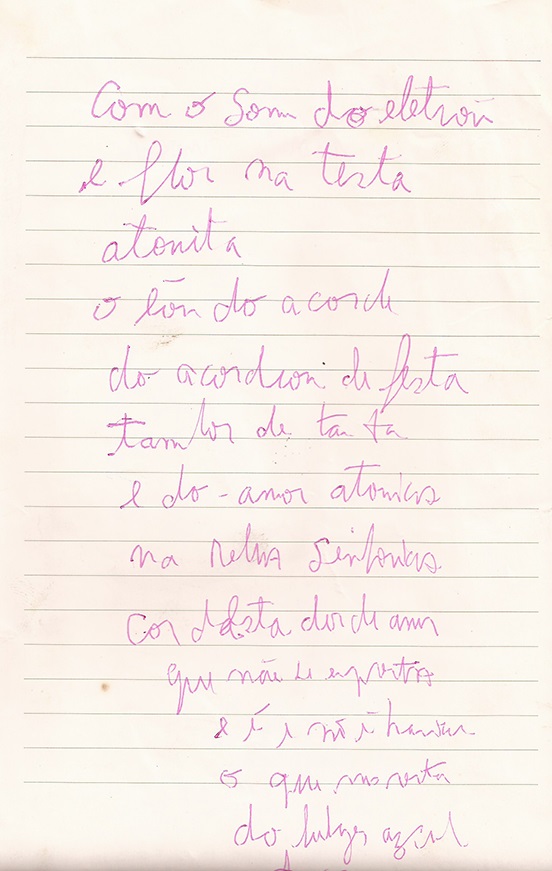 Com o som do eletron
e flor na testa
atonita
o lon do acorde
do acordeon de festa
tambor de tanta
e do - amor atomicas
na relva sinfonicas
Cor desta dor de amor
que não se
e é e não é
o que nos resta
do azul